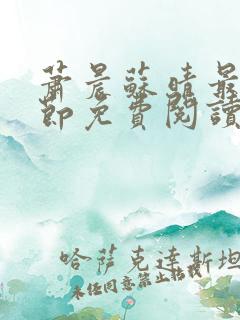 蕭晨蘇晴最
節免費閱讀
哈薩克達斯坦
未經同意禁止轉載